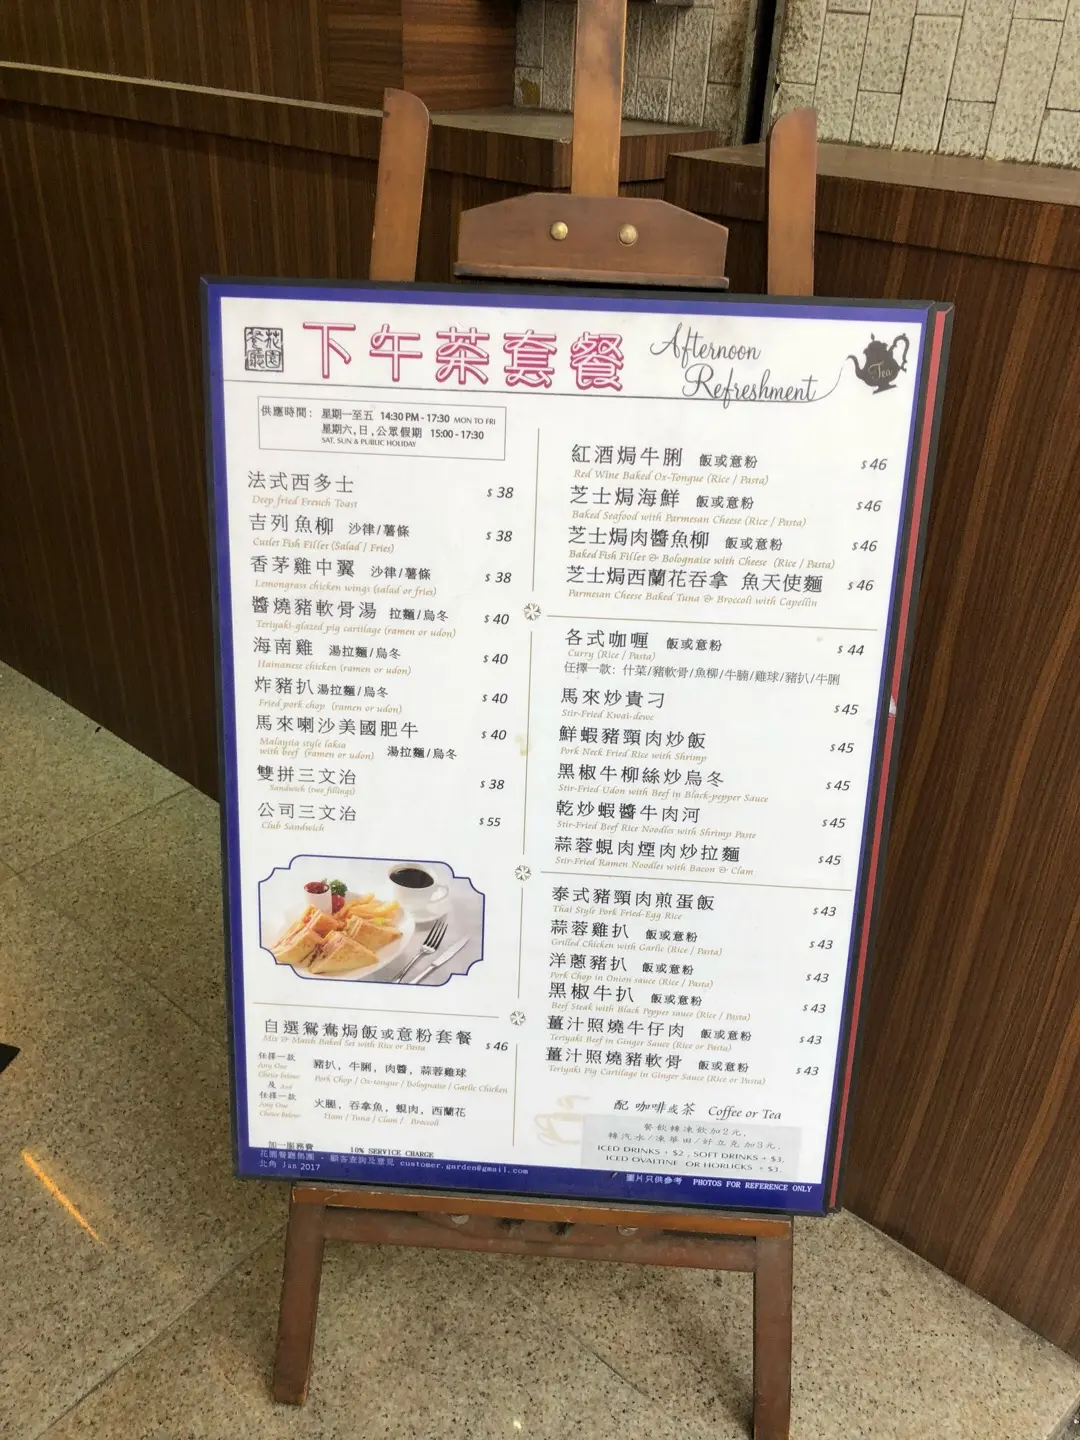 花園餐廳
下午茶套餐
Afternoon
Refreshment
Tea
供應時間： 星期一至五 14:30 PM - 17:30 MON TO FRI
星期六,日,公眾假期 15:00 - 17:30
SAT, SUN & PUBLIC HOLIDAY
法式西多士 $ 38
Deep fried French Toast
吉列魚柳 沙律/薯條 $ 38
Cutlet Fish Fillet (Salad / Fries)
香茅雞中翼 沙律/薯條 $ 38
Lemongrass chicken wings (salad or fries)
醬燒豬軟骨湯 拉麵/烏冬 $ 40
Teriyaki-glazed pig cartilage (ramen or udon)
海南雞 湯拉麵/烏冬 $ 40
Hainanese chicken (ramen or udon)
炸豬扒湯拉麵/烏冬 $ 40
Fried pork chop (ramen or udon)
馬來喇沙美國肥牛 $ 40
Malaysia style laksa
with beef (ramen or udon) 湯拉麵/烏冬
雙拼三文治 $ 38
Sandwich (two fillings)
公司三文治 $ 55
Club Sandwich
自選鴛鴦焗飯或意粉套餐 $ 46
Mix & Match Baked Set with Rice or Pasta
任擇一款 豬扒，牛脷，肉醬，蒜蓉雞球
Any One
Choice below: Pork Chop / Ox-tongue / Bolognaise / Garlic Chicken
及 And
任擇一款 火腿，吞拿魚，蜆肉，西蘭花
Any One
Choice below: Ham / Tuna / Clam / Broccoli
紅酒焗牛脷 飯或意粉 $ 46
Red Wine Baked Ox-Tongue (Rice / Pasta)
芝士焗海鮮 飯或意粉 $ 46
Baked Seafood with Parmesan Cheese (Rice / Pasta)
芝士焗肉醬魚柳 飯或意粉 $ 46
Baked Fish Fillet & Bolognaise with Cheese (Rice / Pasta)
芝士焗西蘭花吞拿 魚天使麵 $ 46
Parmesan Cheese Baked Tuna & Broccoli with Capellin
各式咖喱 飯或意粉 $ 44
Curry (Rice / Pasta)
任擇一款：什菜/豬軟骨/魚柳/牛腩/雞球/豬扒/牛脷
馬來炒貴刁 $ 45
Stir-Fried Kwai-dewe
鮮蝦豬頸肉炒飯 $ 45
Pork Neck Fried Rice with Shrimp
黑椒牛柳絲炒烏冬 $ 45
Stir-Fried Udon with Beef in Black-pepper Sauce
乾炒蝦醬牛肉河 $ 45
Stir-Fried Beef Rice Noodles with Shrimp Paste
蒜蓉蜆肉煙肉炒拉麵 $ 45
Stir-Fried Ramen Noodles with Bacon & Clam
泰式豬頸肉煎蛋飯 $ 43
Thai Style Pork Fried-Egg Rice
蒜蓉雞扒 飯或意粉 $ 43
Grilled Chicken with Garlic (Rice / Pasta)
洋蔥豬扒 飯或意粉 $ 43
Pork Chop in Onion sauce (Rice / Pasta)
黑椒牛扒 飯或意粉 $ 43
Beef Steak with Black Pepper sauce (Rice / Pasta)
薑汁照燒牛仔肉 飯或意粉 $ 43
Teriyaki Beef in Ginger Sauce (Rice or Pasta)
薑汁照燒豬軟骨 飯或意粉 $ 43
Teriyaki Pig Cartilage in Ginger Sauce (Rice or Pasta)
配 咖啡或茶 Coffee or Tea
餐飲轉凍飲加2元，
轉汽水/凍華田/好立克加3元，
ICED DRINKS + $2 , SOFT DRINKS + $3,
ICED OVALTINE OR HORLICKS + $3.
加一服務費 10% SERVICE CHARGE
花園餐廳集團 ‧ 顧客查詢及意見 customer.garden@gmail.com
北角 Jan 2017
圖片只供參考 PHOTOS FOR REFERENCE ONLY